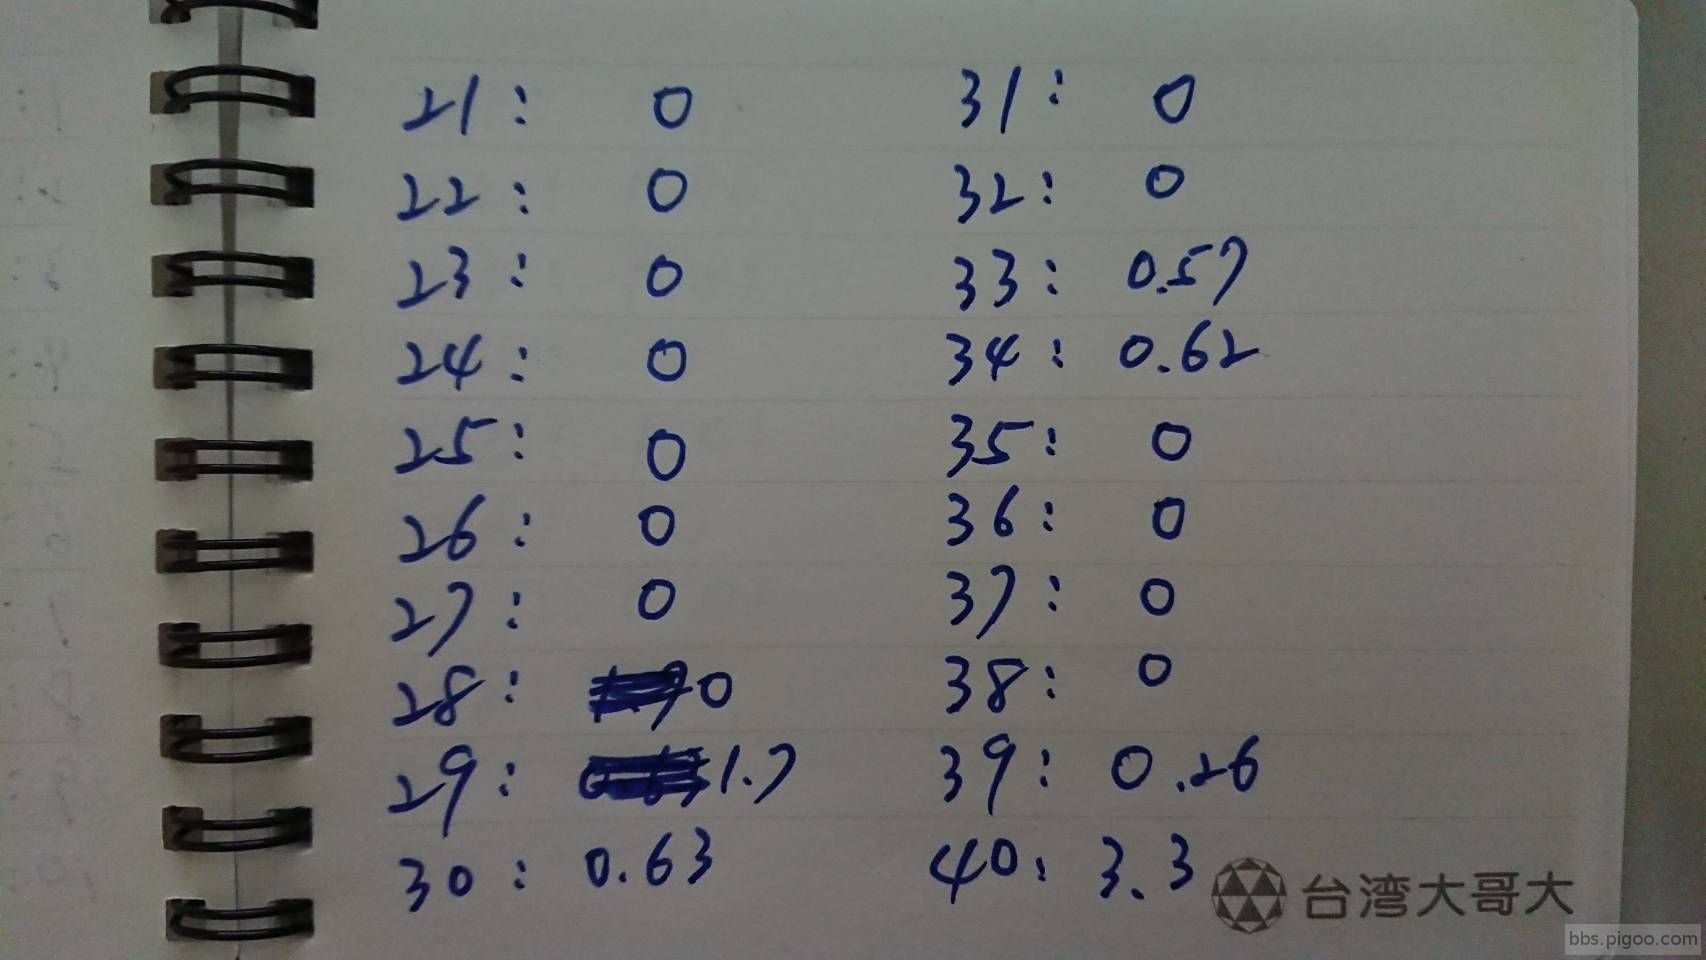 21: 0
22: 0
23: 0
24: 0
25: 0
26: 0
27: 0
28: 0
29: 1.7
30: 0.63
31: 0
32: 0
33: 0.57
34: 0.62
35: 0
36: 0
37: 0
38: 0
39: 0.26
40: 3.3
台湾大哥大
bbs.pigoo.com